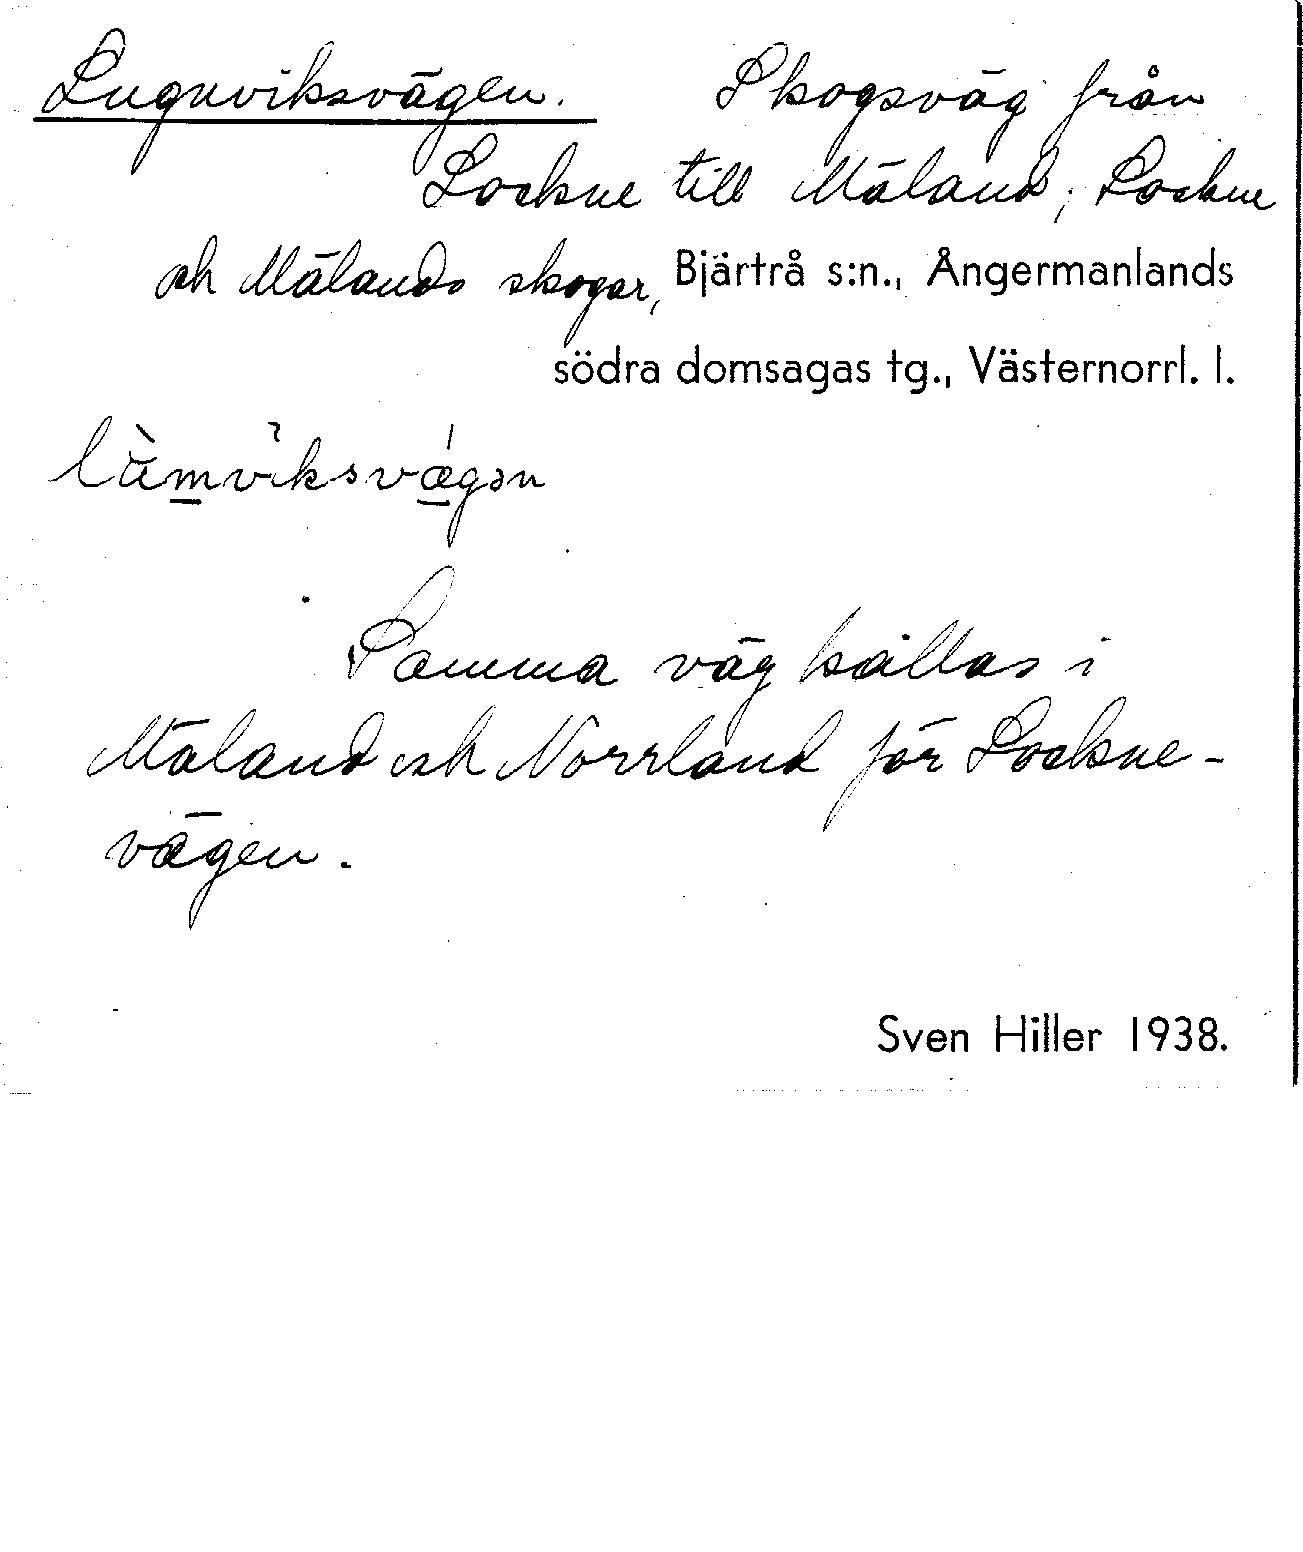 Lugnviksvägen. Skogsväg från
Lockne till Mäland; Lockne
och Mälands skogar, Bjärtrå s:n., Ångermanlands
södra domsagas tg., Västernorrl. l.
lùmviksvægən
Samma väg kallas i
Mäland och Norrland för Lockne-
vägen.
Sven Hiller 1938.